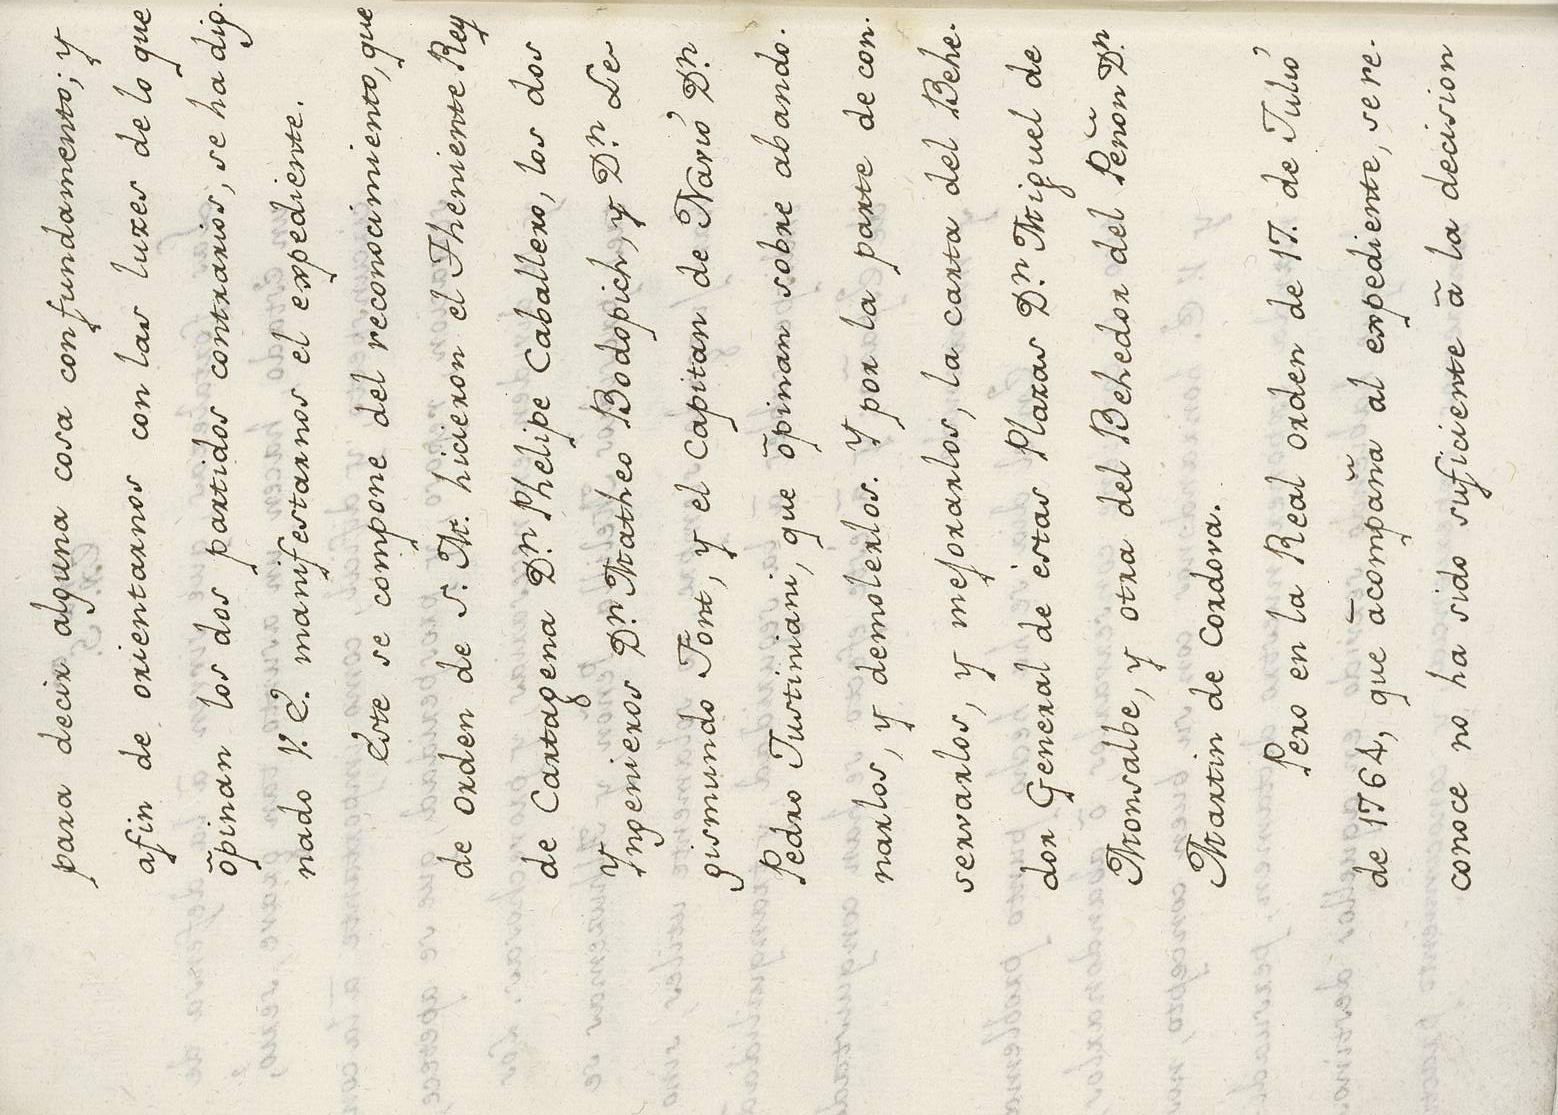 para decir alguna cosa con fundamento; y
afin de orientarnos con las luzes de lo que
õpinan los dos partidos contrarios, se ha dig.
nado V. E. manifestarnos el expediente.
Este se compone del reconocimiento, que
de orden de S. M. hicieron el Theniente Rey
de Cartagena Dn. Phelipe Caballero, los dos
Yngenieros Dn. Matheo Bodopich, y Dn. Se
gismundo Font, y el Capitan de Navió Dn.
Pedro Justiniani, que õpinan sobre abando.
narlos, y demolerlos. Y por la parte de con.
servarlos, y mejorarlos, la carta del Behe.
dor General de estas Plazas Dn. Miguel de
Monsalbe, y otra del Behedor del Peñon Dn.
Martin de Cordova.
Pero en la Real orden de 17. de Julió
de 1764, que ãcompaña al expediente, se re.
conoce no ha sido suficiente ã la decision